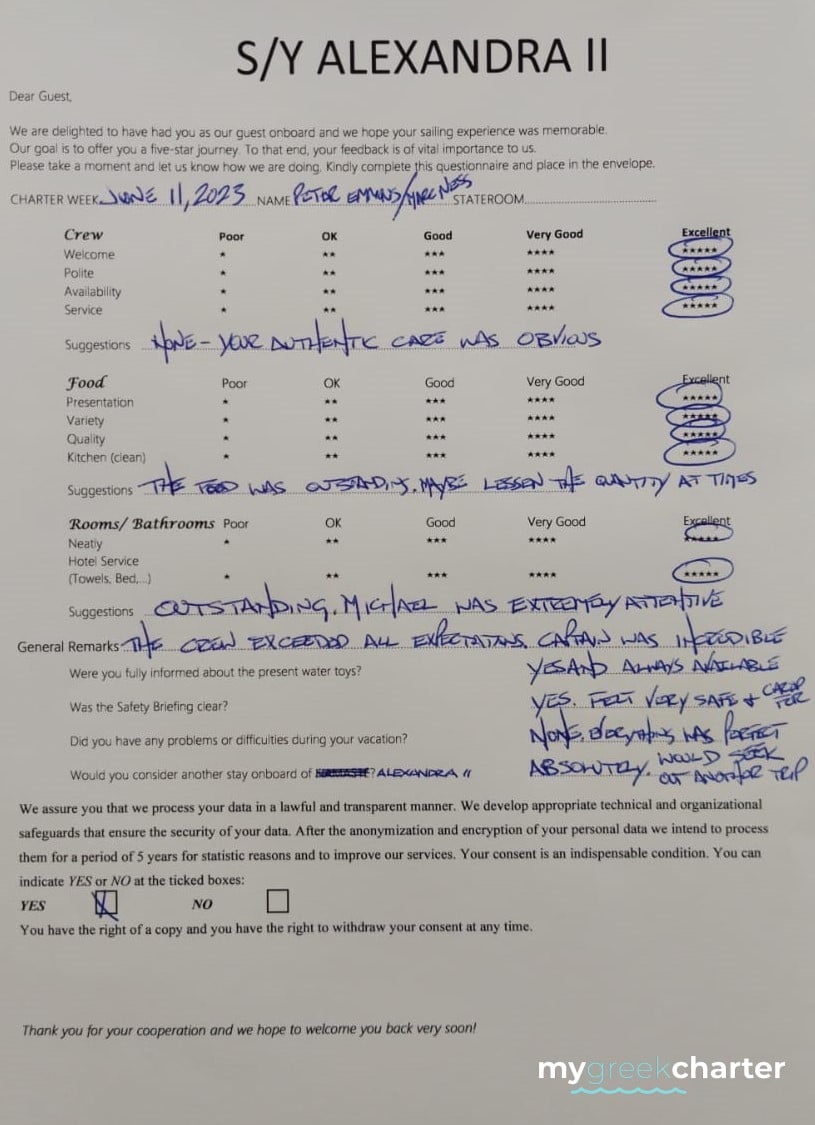 S/Y ALEXANDRA II
Dear Guest,
We are delighted to have had you as our guest onboard and we hope your sailing experience was memorable.
Our goal is to offer you a five-star journey. To that end, your feedback is of vital importance to us.
Please take a moment and let us know how we are doing. Kindly complete this questionnaire and place in the envelope.
CHARTER WEEK JUNE 11, 2023 NAME PETER EMMONS/MARC NESS STATEROOM
Crew Poor OK Good Very Good Excellent
Welcome * ** *** **** *****
Polite * ** *** **** *****
Availability * ** *** **** *****
Service * ** *** **** *****
Suggestions NONE - YOUR AUTHENTIC CARE WAS OBVIOUS
Food Poor OK Good Very Good Excellent
Presentation * ** *** **** *****
Variety * ** *** **** *****
Quality * ** *** **** *****
Kitchen (clean) * ** *** **** *****
Suggestions THE FOOD WAS MAYBE LESSEN THE QUANTITY AT TIMES
Rooms/ Bathrooms Poor OK Good Very Good Excellent
Neatly * ** *** **** *****
Hotel Service
(Towels, Bed,...) * ** *** **** *****
Suggestions OUTSTANDING. MICHAEL WAS EXTREMELY ATTENTIVE
General Remarks THE CREW EXCEEDED ALL EXPECTATIONS. CAPTAIN WAS INCREDIBLE
Were you fully informed about the present water toys? YES AND ALWAYS AVAILABLE
Was the Safety Briefing clear? YES. FELT VERY SAFE + CARED FOR
Did you have any problems or difficulties during your vacation? NONE. EVERYTHING WAS PERFECT
Would you consider another stay onboard of ? ALEXANDRA II ABSOLUTELY. WOULD SEEK OUT ANOTHER TRIP
We assure you that we process your data in a lawful and transparent manner. We develop appropriate technical and organizational
safeguards that ensure the security of your data. After the anonymization and encryption of your personal data we intend to process
them for a period of 5 years for statistic reasons and to improve our services. Your consent is an indispensable condition. You can
indicate YES or NO at the ticked boxes:
YES NO
You have the right of a copy and you have the right to withdraw your consent at any time.
Thank you for your cooperation and we hope to welcome you back very soon!
mygreekcharter